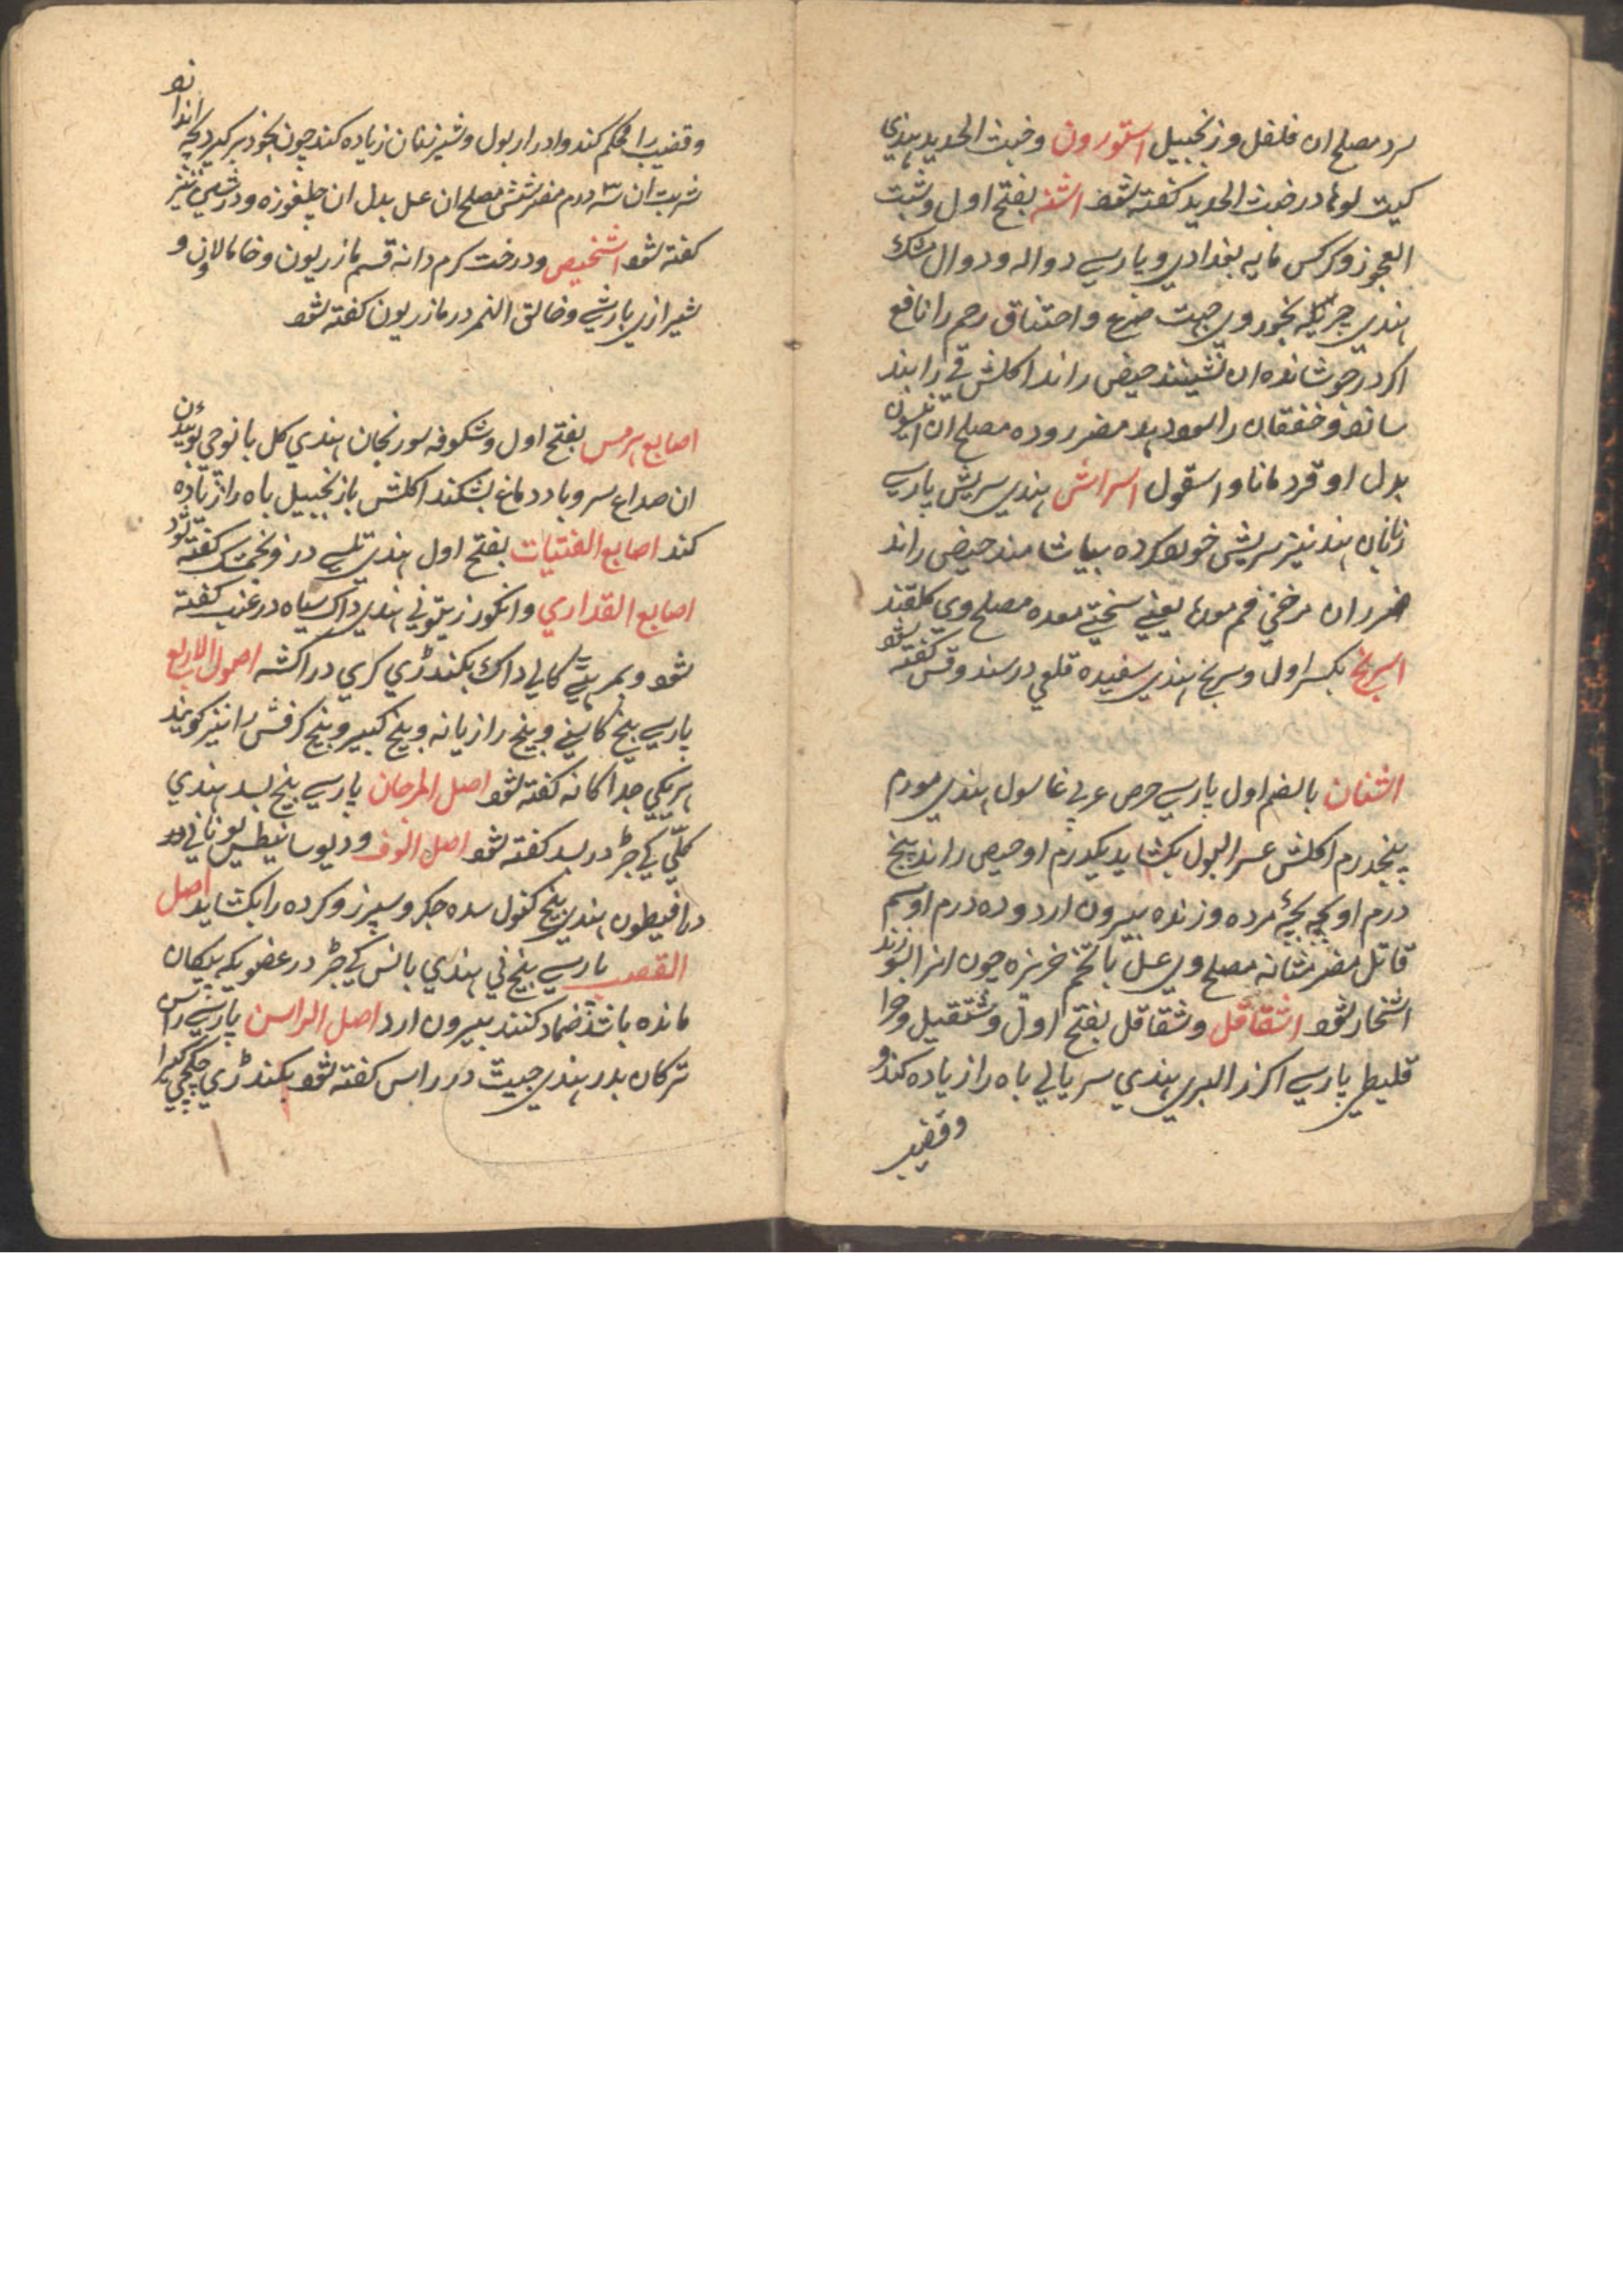 برد مصلح ان فلفل و زنجبیل استورون و خبث الحدید هندي
کیت لوها در خبث الحدید کفته شود اشنه بفتح اول و شبت
العجوز و کرکس مایه بغدادي و پارسي دواله و دوال مشک
هندي چریله بخور وي جهت صرع و احتناق رحم را نافع
اکر در جوشانده ان نشینند حیض راند اکلش قي را بند
سازد و خفقان را سود دهد مضر روده مصلح ان انیسون
بدل او قردمانا و اسقول اسراش هندي سریش پارسي
زنان هند نیز سریش خورد کرده بیاشامند حیض راند
ضرر ان مرخي فم معده یعني سختي معده مصلح وي کلقند
اسرنج بکسر اول و سرنج هندي سفیده قلعي در سند وقس کفته شود
اشنان بالضم اول پارسي حرص عربي غاسول هندي مورم
پنجدرم اکلش عسر البول بکشاید یکدرم او حیص راند پنج
درم او بچه مرده و زنده بیرون ارد و ده درم او سم
قاتل مضر مثانه مصلح وي عسل با تخم خربزه چون انرا بسوزند
اشخار شود اشقاقل و شقاقل بفتح اول و ششقیل و جرا
قلیطي پارسي اکزر البري هندي سریالي باه را زیاده کند و
وقضیب
وقضیب را محکم کند و ادرار بول و شیر زنان زیاده کند چون بخود برکیرد بچه اندازد
شربت ان سه درم مضر شش مصلح ان عسل بدل ان چلغوزه و در شیي نیز
کفته شود اشخیص و درخت کرم دانه قسم مازریون و خامالاون و
شیرازي بارشي و خالق النمر در مازریون کفته شود
اصابع هرمس بفتح اول و شکوفه سورنجان هندي کل بانوجي بوئیدن
ان صداع سر و باد دماغ بشکند اکلش با زنجبیل باه را زیاده
کند اصابع الفتیات بفتح اول هندي تلسي در فرنجمشک کفته شود
اصابع القداري و انکور زیتوني هندي داک سیاه در عنب کفته
شود و بمرهتي کالي داک بکندڑي کري دراکشه اصول الاربع
پارسي بیخ کاسني و بیخ رازیانه و بیخ کبیر و بیخ کرفش را نیز کویند
هریکي جداکانه کفته شود اصل المرجان پارسي بیخ بسد هندي
کلّي کي جڑ در بسد کفته شود اصل الوف و دیوسانیطیس یوناني
درافیطون هندي بیخ کنول سده جکر و سپرز و کرده را بکشاید اصل
القصب پارسي بیخ ني هندي بانس کي جڑ در عضویکه پیکان
مانده باشد ضماد کنند بیرون ارد اصل الراسن پارسي راسن
ترکان بدر هندي جیت در راس کفته شود بکندڑي چکچي کیرا